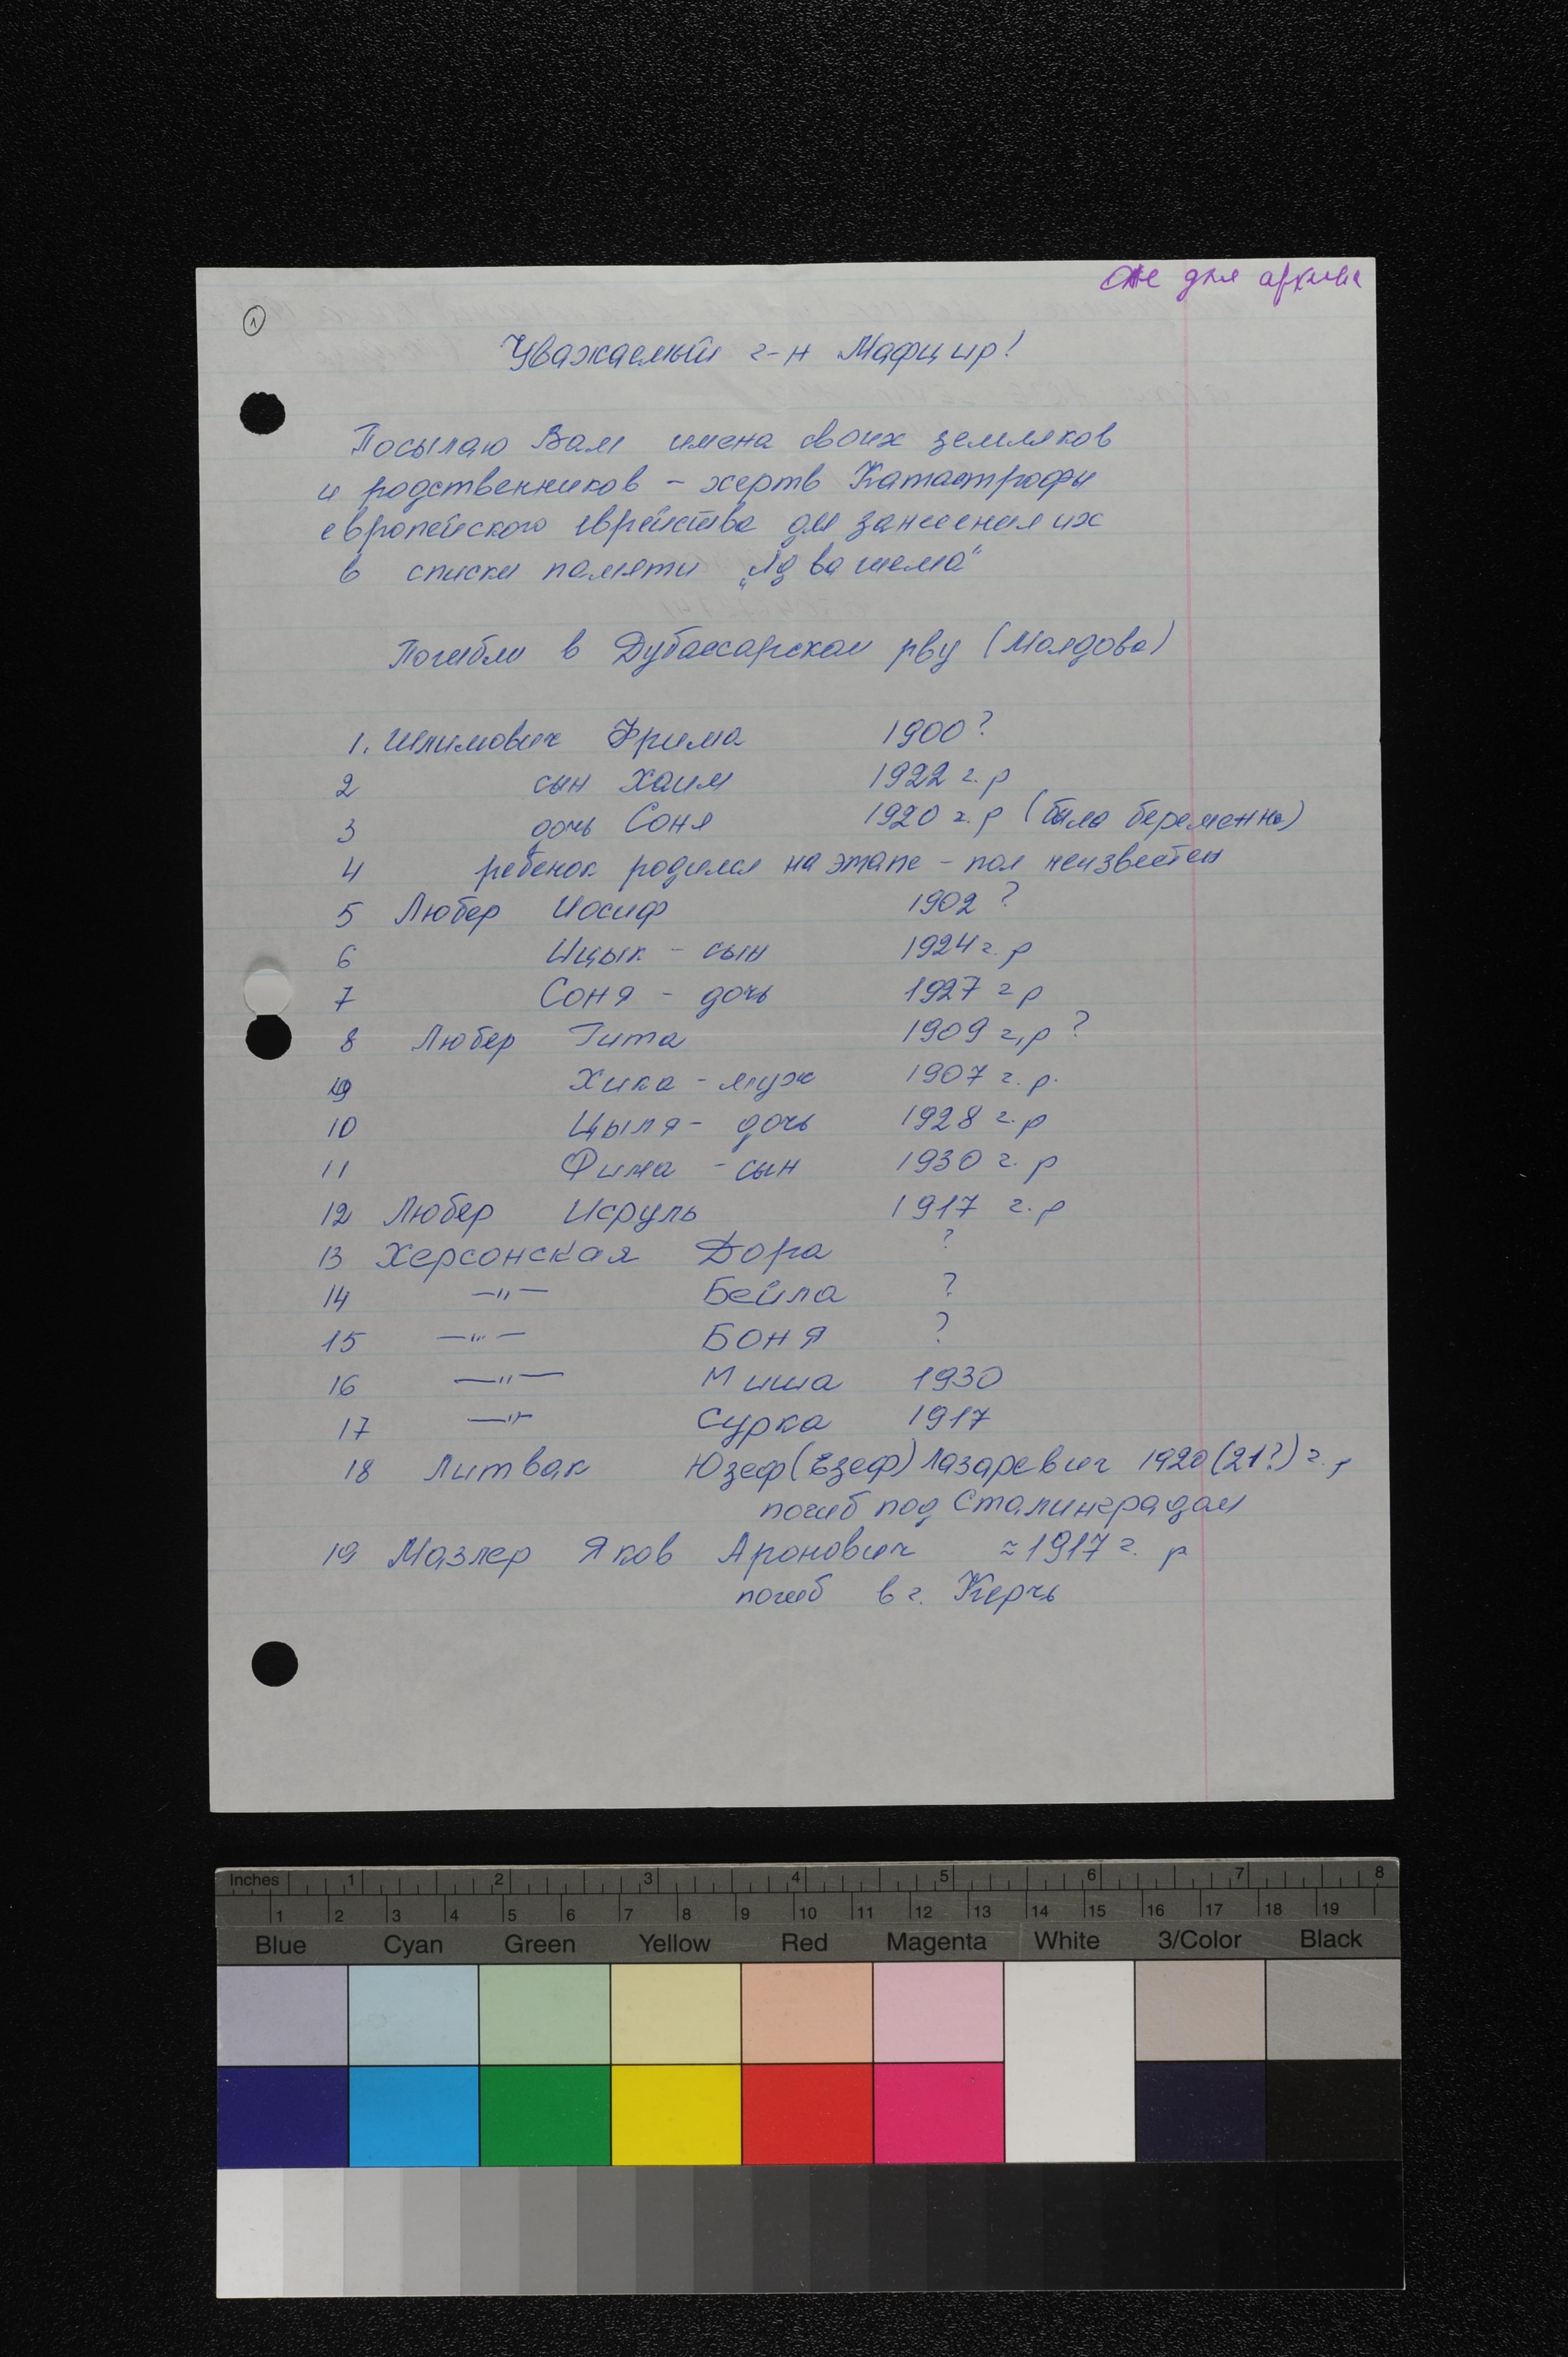 для архива
1
Уважаемый г-н Мафцир!
Посылаю Вам имена своих земляков
и родственников - жертв Катастрофы
европейского еврейства для занесения их
в списки памяти „Яд вашема“
Погибли в Дубассарском рву (Молдова)
1. Шлимович Фрима 1900?
2 сын Хаим 1922 г. р
3 дочь Соня 1920 г. р (была беременна)
4 ребенок родился на этапе - пол неизвестен
5 Любер Иосиф 1902 ?
6 Ицык - сын 1924 г. р
7 Соня - дочь 1927 г р
8 Любер Гита 1909 г. р ?
9 Хика - муж 1907 г. р.
10 Цыля - дочь 1928 г. р
11 Фима - сын 1930 г. р
12 Любер Исруль 1917 г. р
13 Херсонская Дора ?
14 —„— Бейла ?
15 —„— Боня ?
16 —„— Миша 1930
17 —„— Сурка 1917
18 Литвак Юзеф (Езеф) Лазаревич 1920 (21?) г. р
погиб под Сталинградом
19 Мазлер Яков Аронович ≈ 1917 г. р
погиб в г. Керчь
Inches 1 2 3 4 5 6 7 8
1 2 3 4 5 6 7 8 9 10 11 12 13 14 15 16 17 18 19
Blue Cyan Green Yellow Red Magenta White 3/Color Black